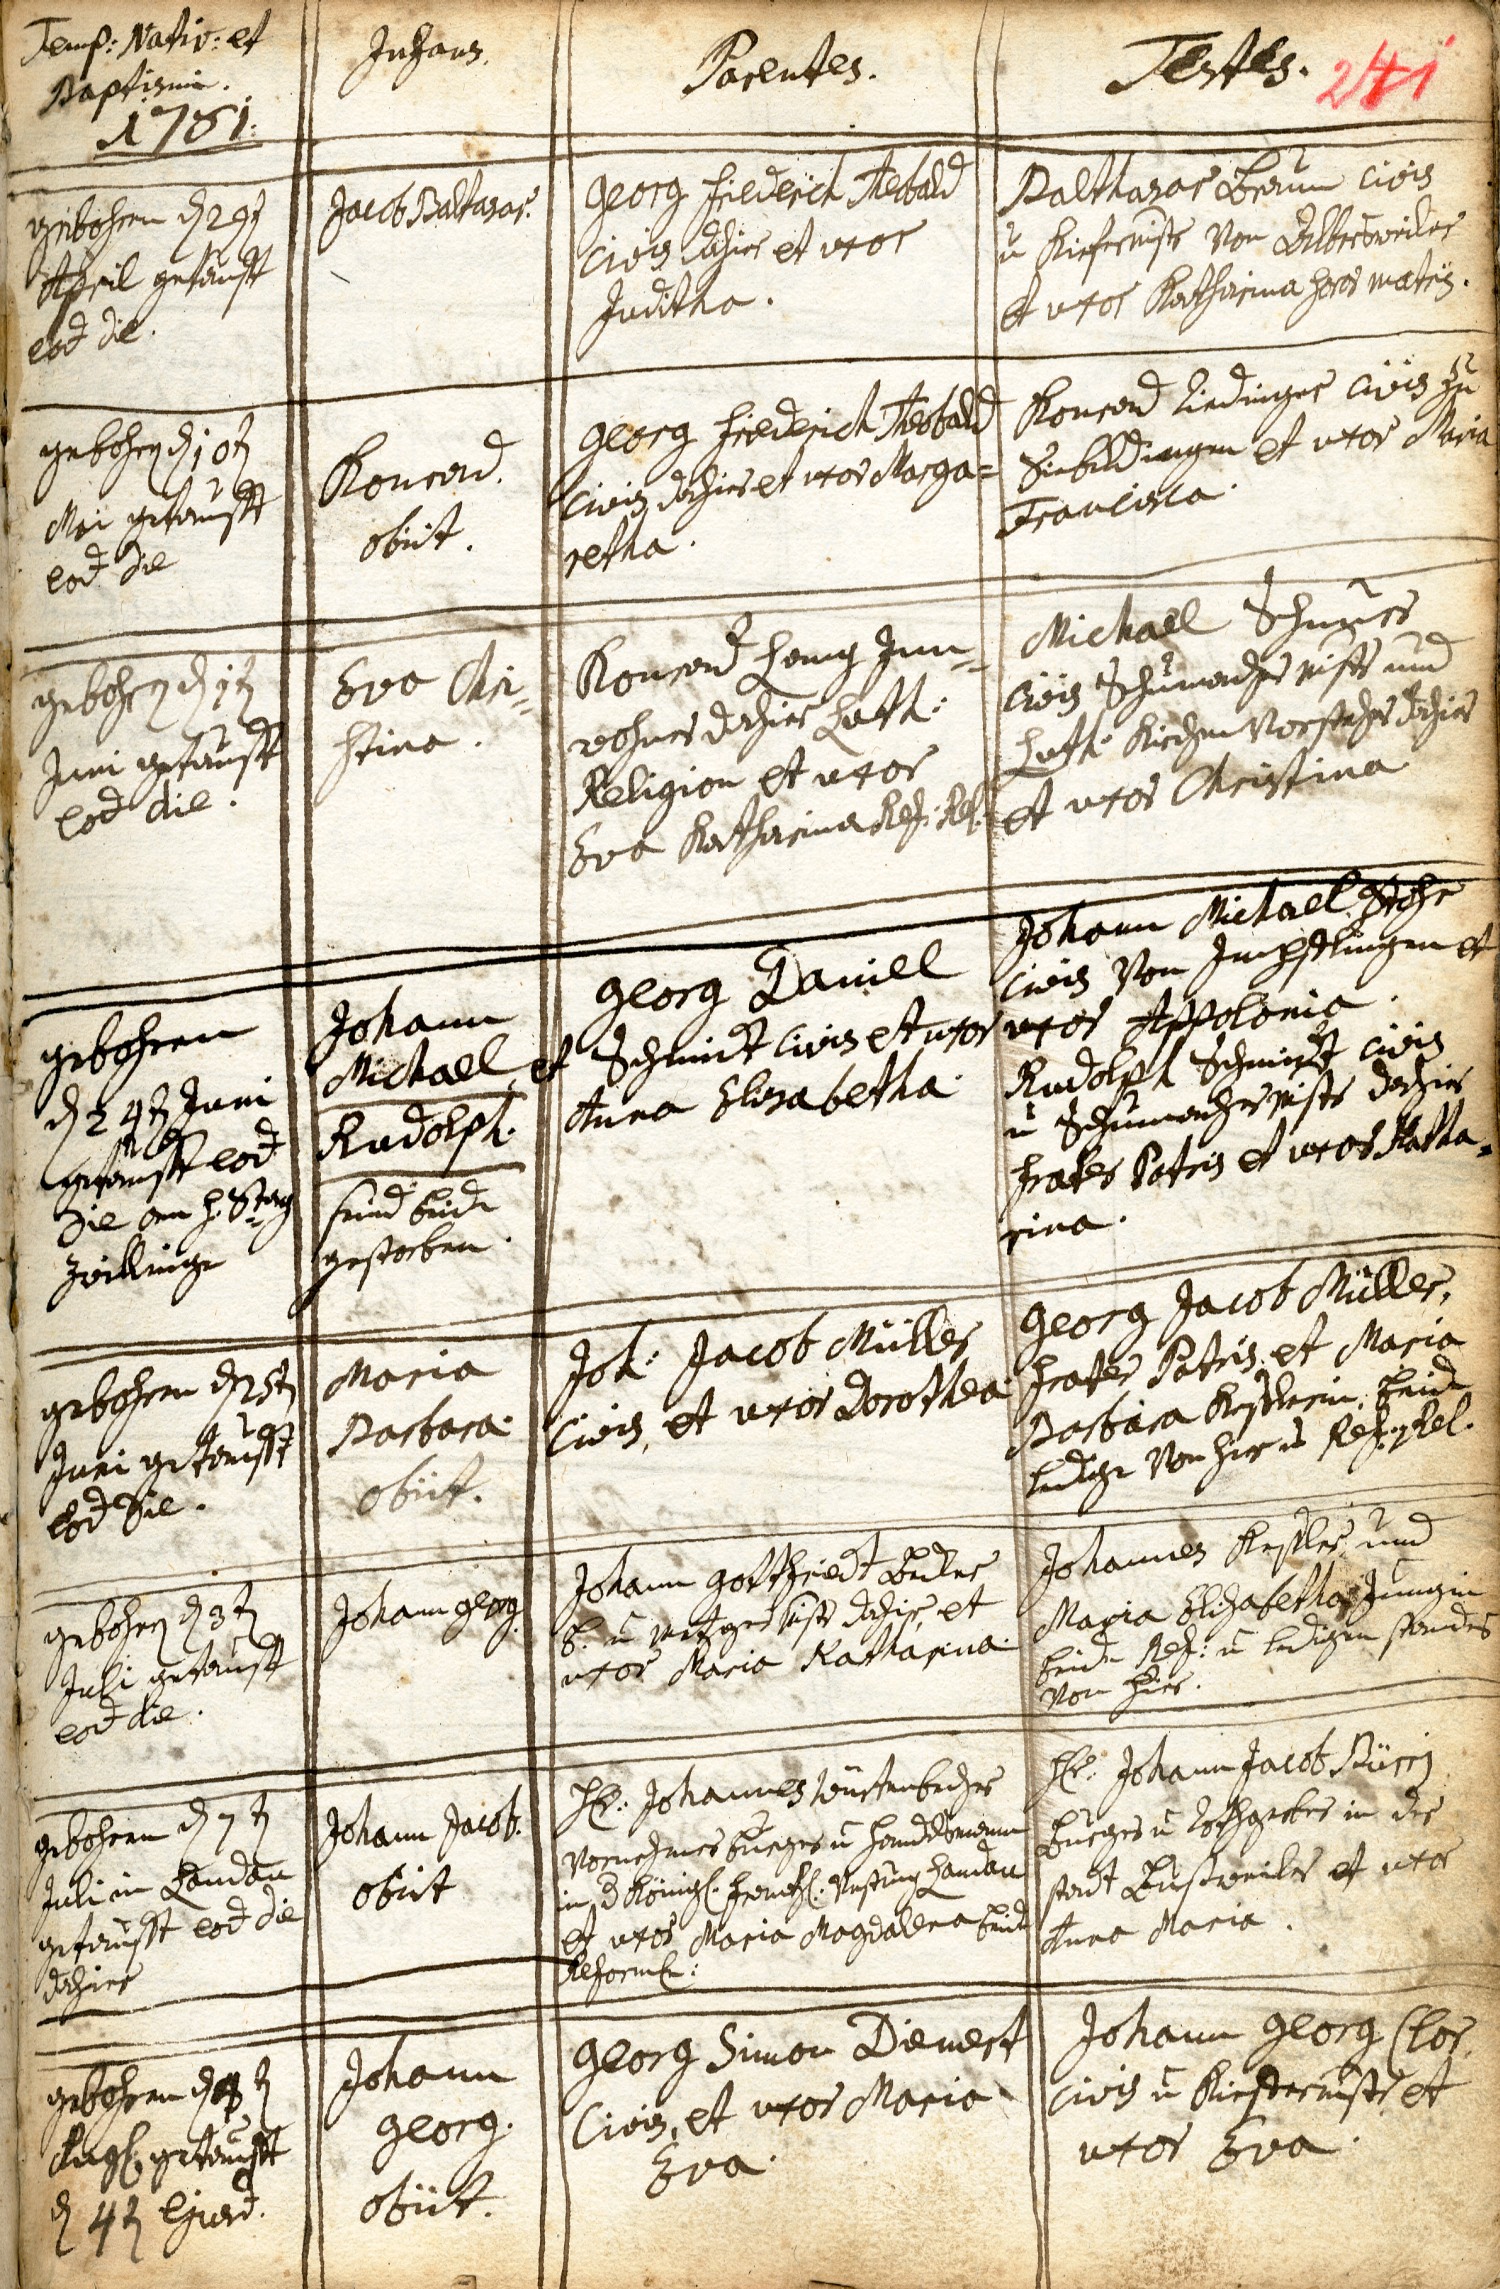 Temp: Nativ: et
Baptismi.
1781.
Infans.
Parentes.
Testes.
241
gebohren d 29t
April getauft
eod die.
Jacob Baltasar.
Georg Friederich Theobald
civis dahier et uxor
Juditha.
Balthasar Braun civis
u Kiefermstr von Albersweiler
et uxor Katharina soror matris.
gebohren d 10t
Mai getaufft
eod die
Konrad.
obiit.
Georg Friederich Theobald
civis dahier et uxor Marga=
retha.
Konrad civis zu
Siebeldingen et uxor Maria
Francisca.
gebohren d 1t
Juni getaufft
eod die.
Eva Chri=
stina.
Konrad Inn=
wohner dahier Luth:
Religion et uxor
Eva Katharina Ref: Rel.
Michael
civis Schumacher mstr und
Luth: Kirchen Vorsteher dahier
et uxor Christina
gebohren
d 24t Juni
getaufft eod
die am
Zwillinge
Johann
Michael, et
Rudolph.
sind beide
gestorben.
Georg Daniel
Schmidt civis et uxor
Anna Elisabetha.
Johann Michael
civis von Impflingen et
uxor Appolonia.
Rudolph Schmidt civis
u Schumacher mstr dahier
frater Patris et uxor Katha=
rina.
gebohren d 25t
Juni getaufft
eod die.
Maria
Barbara.
obiit.
Joh: Jacob Müller
civis, et uxor Dorothea.
Georg Jacob Müller,
frater Patris, et Maria
Barbara Keßlerin, beide
ledige von hier u Ref. Rel.
gebohren d 3t
Juli getaufft
eod die.
Johann Georg.
Johann Gottfriedt
B. u metzger mstr dahier, et
uxor Maria Katharina.
Johannes Keßler und
Maria Elisabetha Jungin
beide Ref: u ledigen standes
von hier.
gebohren d 7t
Juli in Landau
getaufft eod die
dahier
Johann Jacob.
obiit
Hr: Johannes
vornehmer Burger u Handelsmann
in d Königl. Frantzl: Vestung Landau
et uxor Maria Magdalena beide
Reforml:
Hr: Johann Jacob
Burger u Rothgerber in der
stadt Busweiler et uxor
Anna Maria.
gebohren d
getaufft
d 4t
Johann
Georg.
obiit.
Georg Simon Dienest
Civis, et uxor Maria
Eva.
Johann Georg Clor
civis u Kiefermstr, et
uxor Eva.